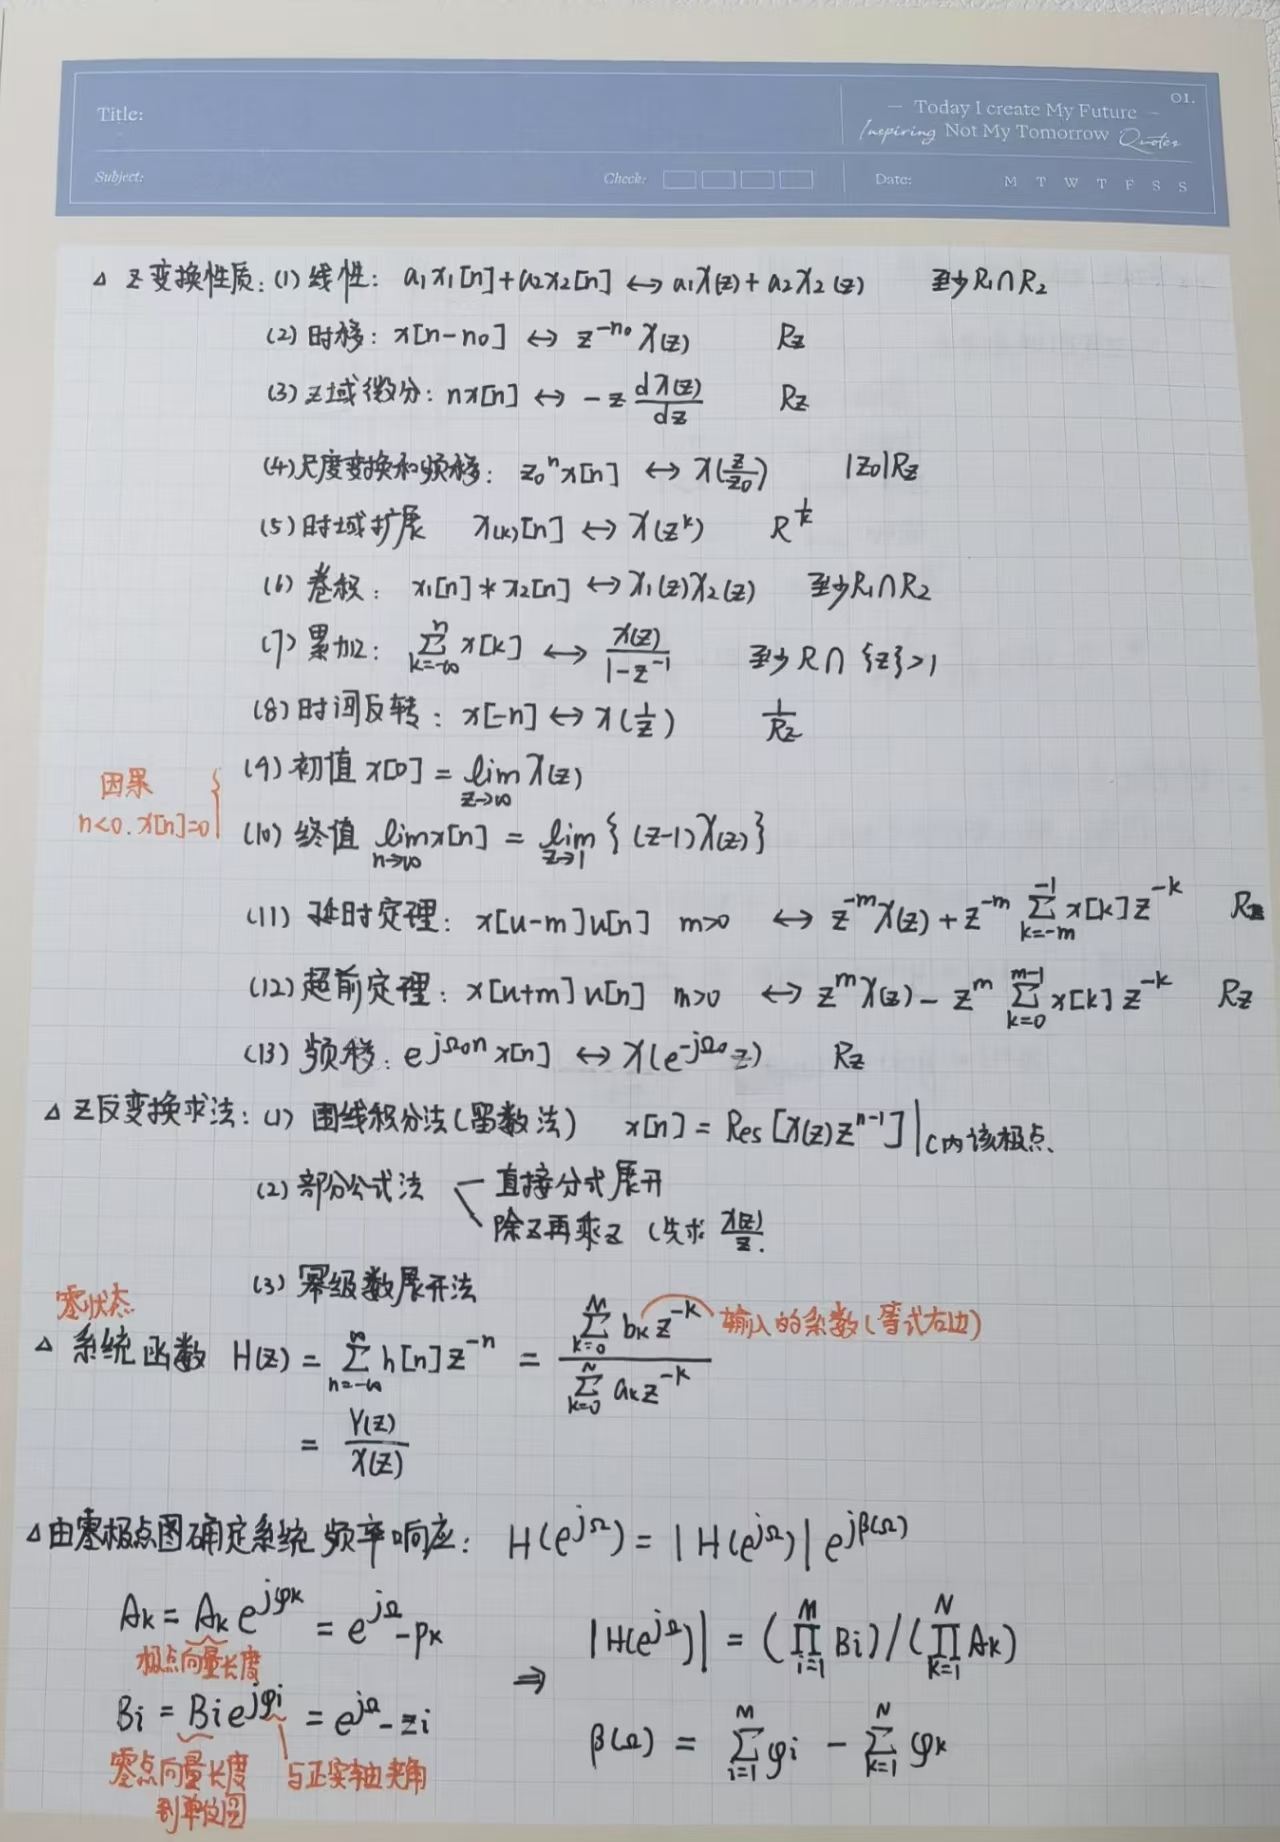 Title:
01.
— Today I create My Future —
Inspiring Not My Tomorrow Quotes
Subject:
Check:
Date:
M T W T F S S
△ Z变换性质: (1) 线性: a₁x₁[n]+a₂x₂[n] ↔ a₁X(z)+a₂X₂(z) 至少R₁∩R₂
(2) 时移: x[n-n₀] ↔ z^{-n₀}X(z) Rz
(3) Z域微分: nx[n] ↔ -z dX(z)/dz Rz
(4) 尺度变换和频移: z₀ⁿx[n] ↔ X(z/z₀) |z₀|Rz
(5) 时域扩展 x₍ₖ₎[n] ↔ X(z^k) R^{1/k}
(6) 卷积: x₁[n]*x₂[n] ↔ X₁(z)X₂(z) 至少R₁∩R₂
(7) 累加: Σ_{k=-∞}^{n} x[k] ↔ X(z)/(1-z^{-1}) 至少R∩{z}>1
(8) 时间反转: x[-n] ↔ X(1/z) 1/Rz
因果
n<0. x[n]=0
(9) 初值 x[0] = lim_{z→∞} X(z)
(10) 终值 lim_{n→∞} x[n] = lim_{z→1} {(z-1)X(z)}
(11) 延时定理: x[n-m]u[n] m>0 ↔ z^{-m}X(z) + z^{-m} Σ_{k=-m}^{-1} x[k]z^{-k} Rz
(12) 超前定理: x[n+m]u[n] m>0 ↔ z^m X(z) - z^m Σ_{k=0}^{m-1} x[k]z^{-k} Rz
(13) 频移: e^{jΩ₀n}x[n] ↔ X(e^{-jΩ₀}z) Rz
△ Z反变换求法: (1) 围线积分法(留数法) x[n] = Res[X(z)z^{n-1}]|_{C内该极点.}
(2) 部分公式法 直接分式展开
除z再乘z (先求 X(z)/z.
(3) 幂级数展开法
零状态
△ 系统函数 H(z) = Σ_{n=-∞}^{∞} h[n]z^{-n} = Σ_{k=0}^{M} b_k z^{-k} / Σ_{k=0}^{N} a_k z^{-k} 输入的系数(等式右边)
= Y(z)/X(z)
△由零极点图确定系统频率响应: H(e^{jΩ}) = |H(e^{jΩ})| e^{jβ(Ω)}
A_k = A_k e^{jφ_k} = e^{jΩ}-p_k
极点向量长度
⇒ |H(e^{jΩ})| = (Π_{i=1}^{M} B_i)/(Π_{k=1}^{N} A_k)
B_i = B_i e^{jφ_i} = e^{jΩ}-z_i
β(Ω) = Σ_{i=1}^{M} φ_i - Σ_{k=1}^{N} φ_k
零点向量长度
到单位圆
与正实轴夹角